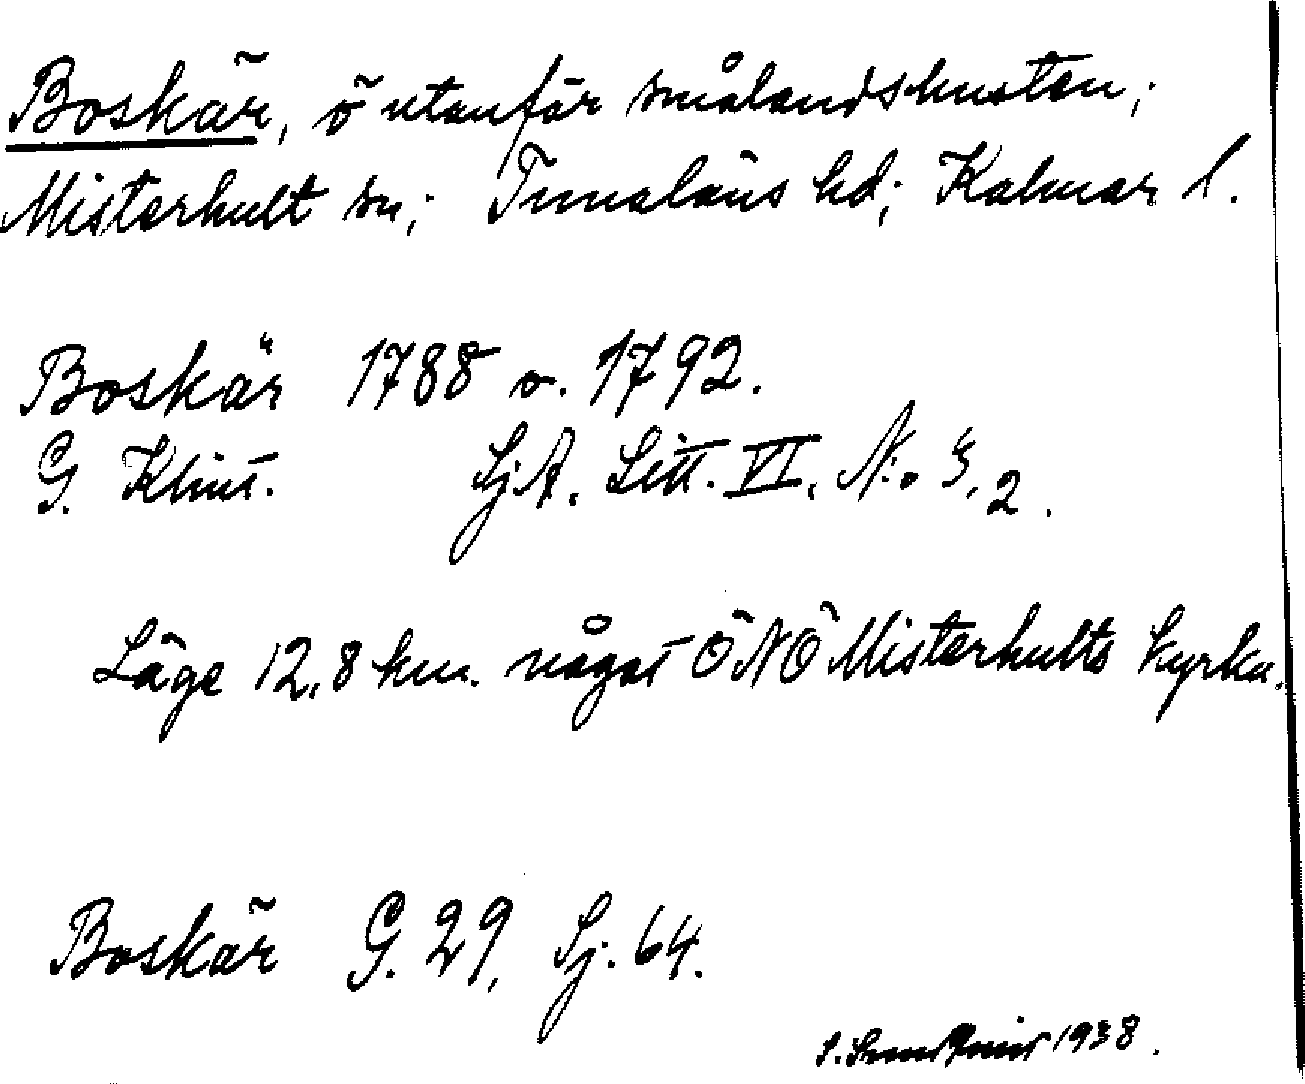 Boskär, ö utanför smålandskusten;
Misterhult sn; Tunaläns hd; Kalmar l.
Boskär 1788 o. 1792.
G. Klint. Sj.A. Litt. VI. N:o 3, 2.
Läge 12,8 km. något ÖNÖ Misterhults kyrka.
Boskär G. 29, Sj. 64.
1938.